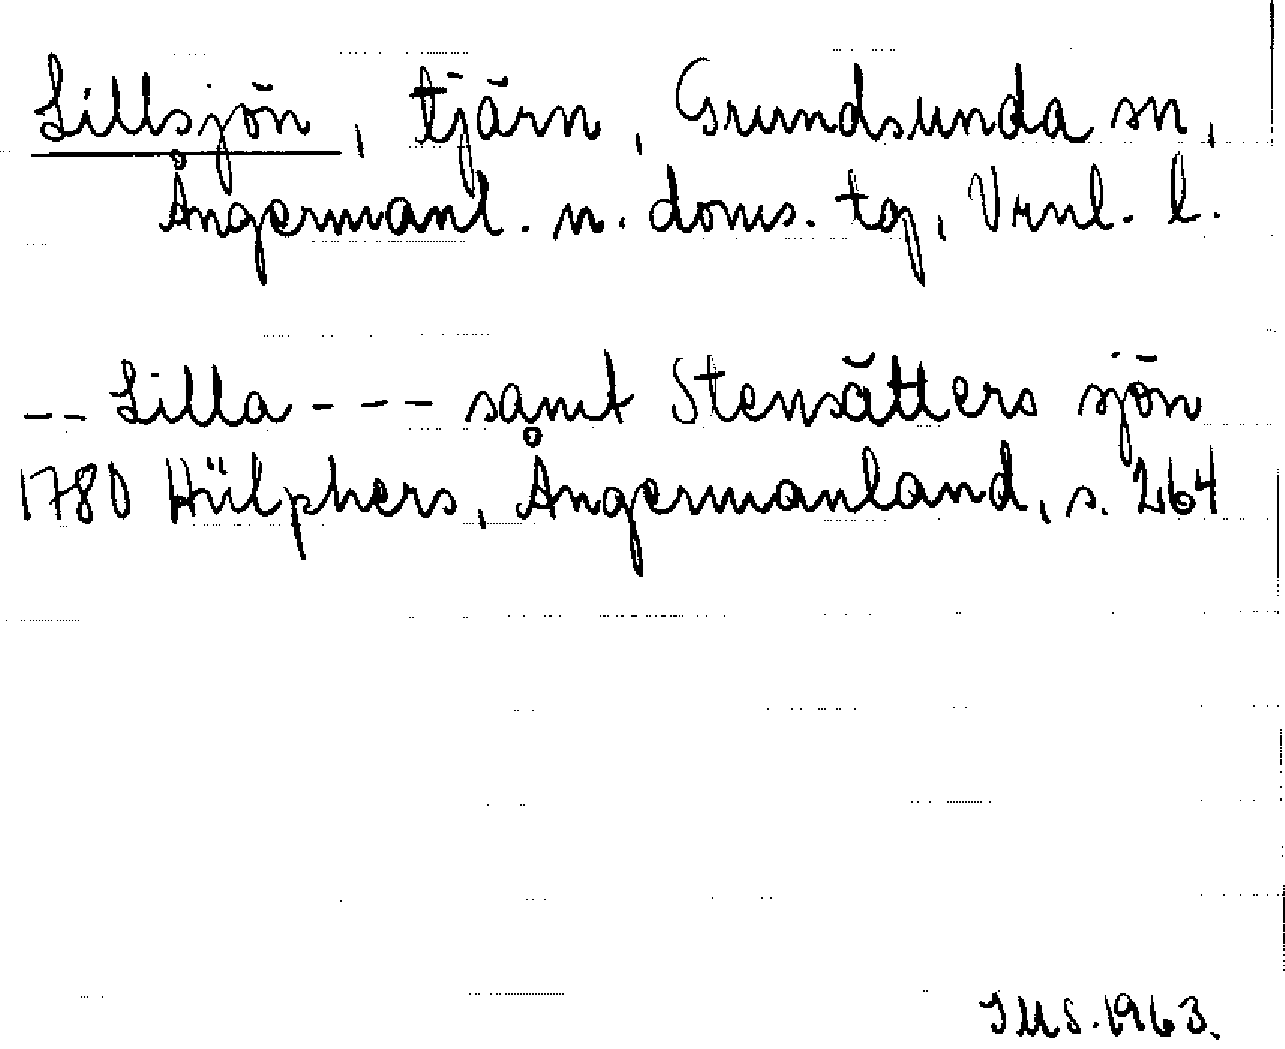 Lillsjön, tjärn, Grundsunda sn,
Ångermanl. n. doms. tg, Vrnl. l.
-- Lilla --- samt Stensätters sjön
1780 Hülphers, Ångermanland, s. 264
IMS. 1963.